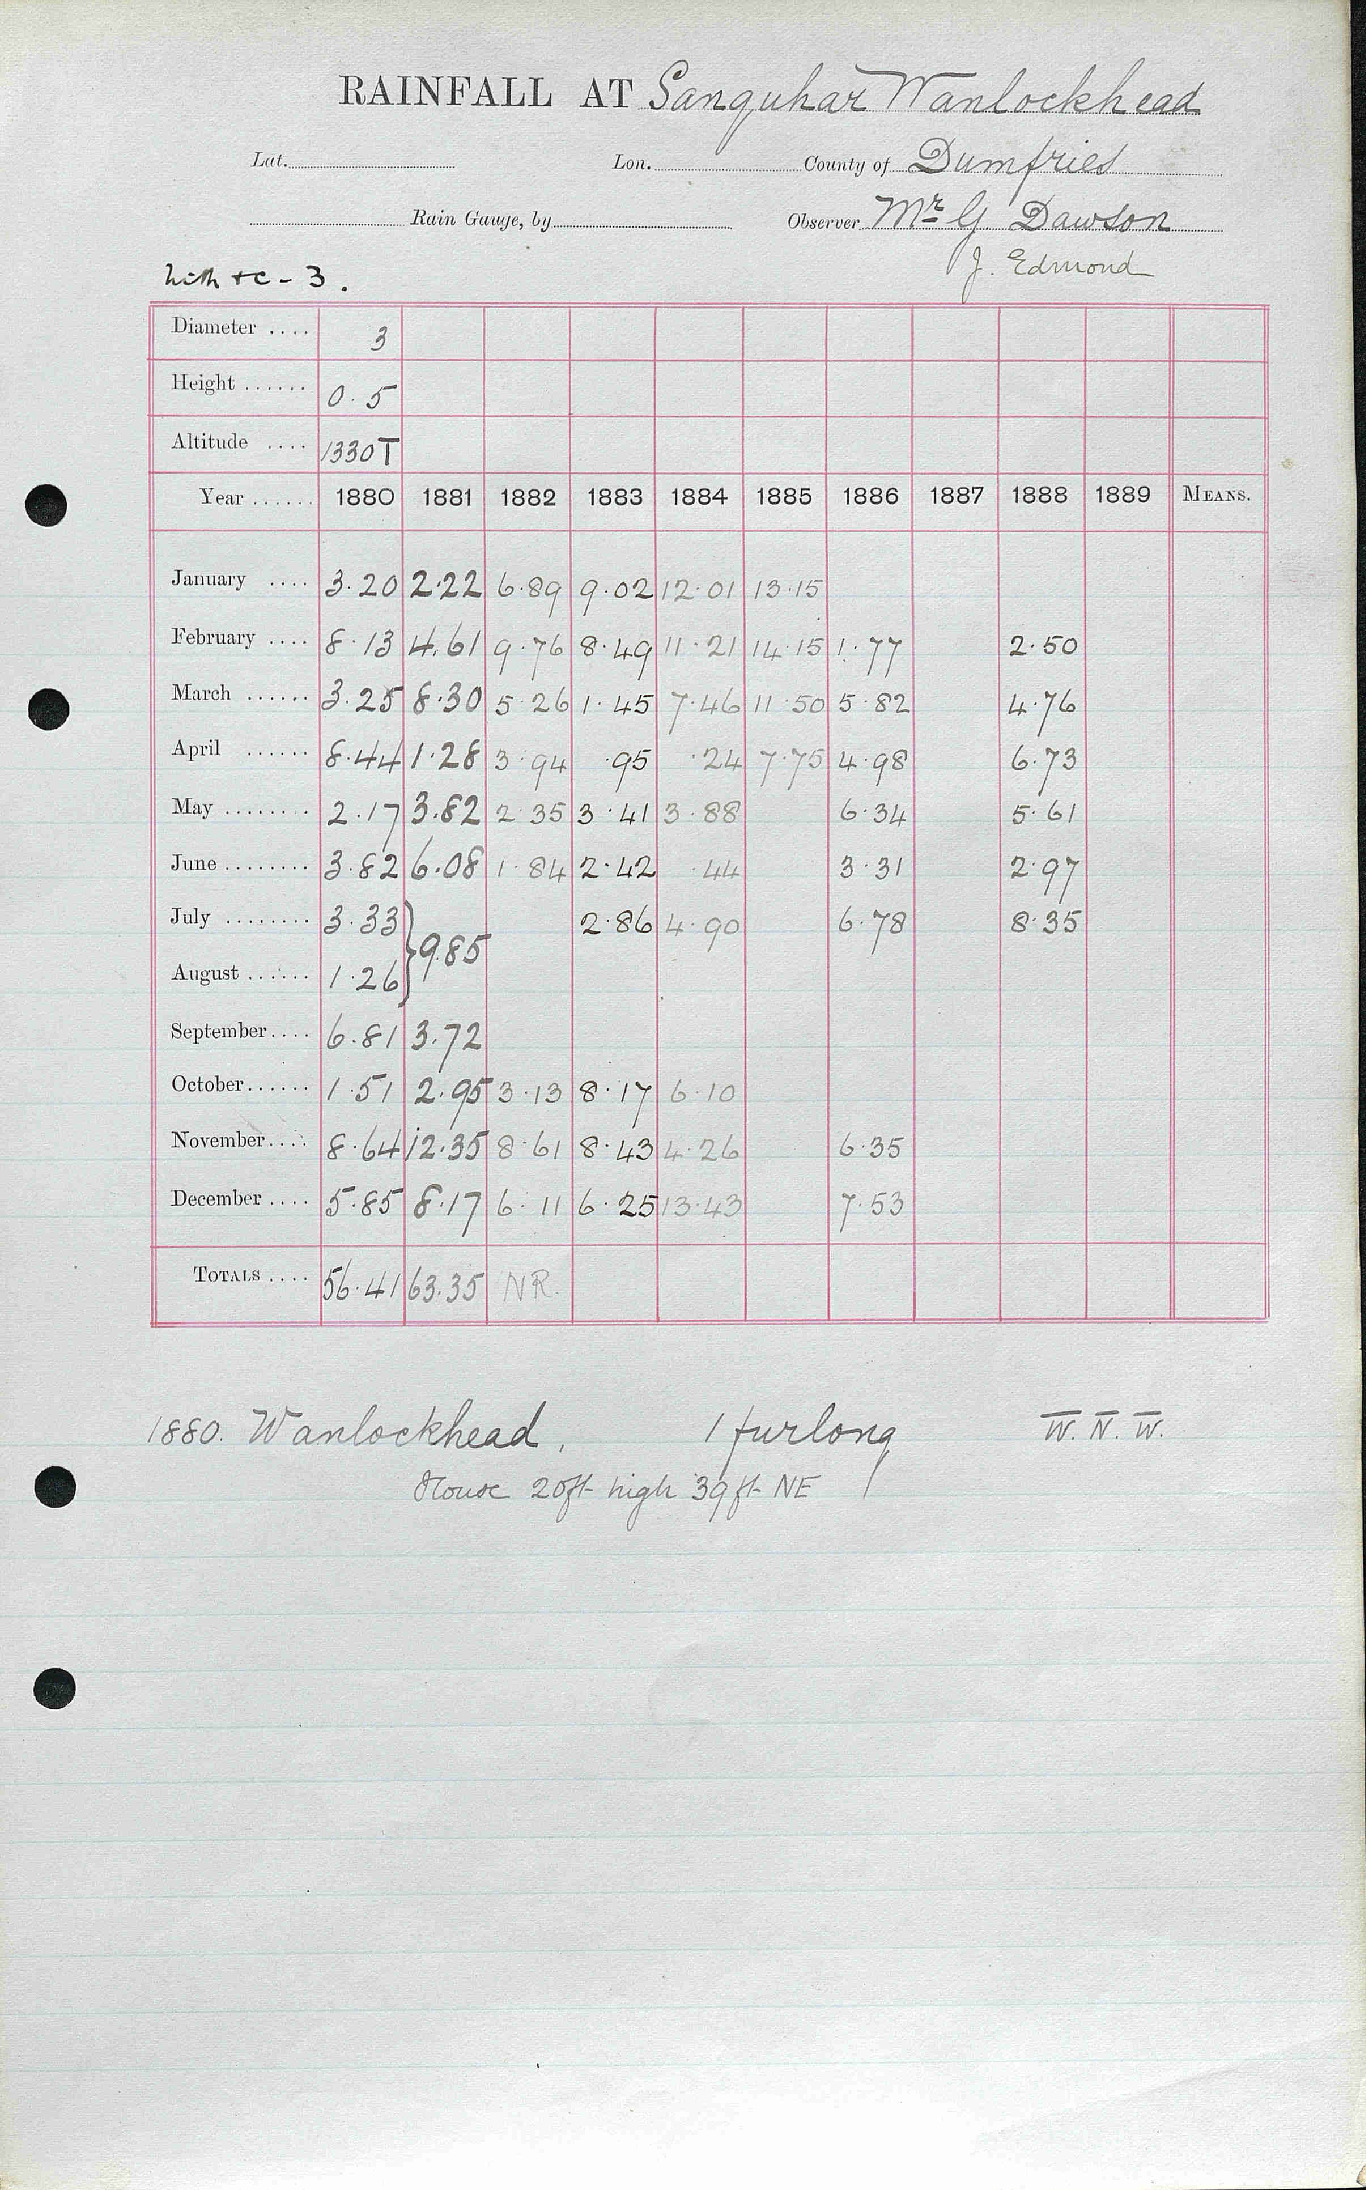 RAINFALL AT Sanquhar Wanlockhead
Lat. Lon. County of Dumfries
Rain Gauge, by Observer Mr G. Dawson
J. Edmond
Nith + C - 3.
Diameter .... 3
Height ...... 0.5
Altitude .... 1330T
Year ...... 1880 1881 1882 1883 1884 1885 1886 1887 1888 1889 MEANS.
January .... 3.20 2.22 6.89 9.02 12.01 13.15
February .... 8.13 4.61 9.76 8.49 11.21 14.15 1.77 2.50
March ...... 3.25 8.30 5.26 1.45 7.46 11.50 5.82 4.76
April ...... 8.44 1.28 3.94 .95 .24 7.75 4.98 6.73
May ........ 2.17 3.82 2.35 3.41 3.88 6.34 5.61
June ........ 3.82 6.08 1.84 2.42 .44 3.31 2.97
July ........ 3.33 2.86 4.90 6.78 8.35
} 9.85
August ...... 1.26
September .... 6.81 3.72
October ...... 1.51 2.95 3.13 8.17 6.10
November .... 8.64 12.35 8.61 8.43 4.26 6.35
December .... 5.85 8.17 6.11 6.25 13.43 7.53
TOTALS .... 56.41 63.35 NR.
1880. Wanlockhead, 1 furlong W. N. W.
House 20ft high 39ft NE